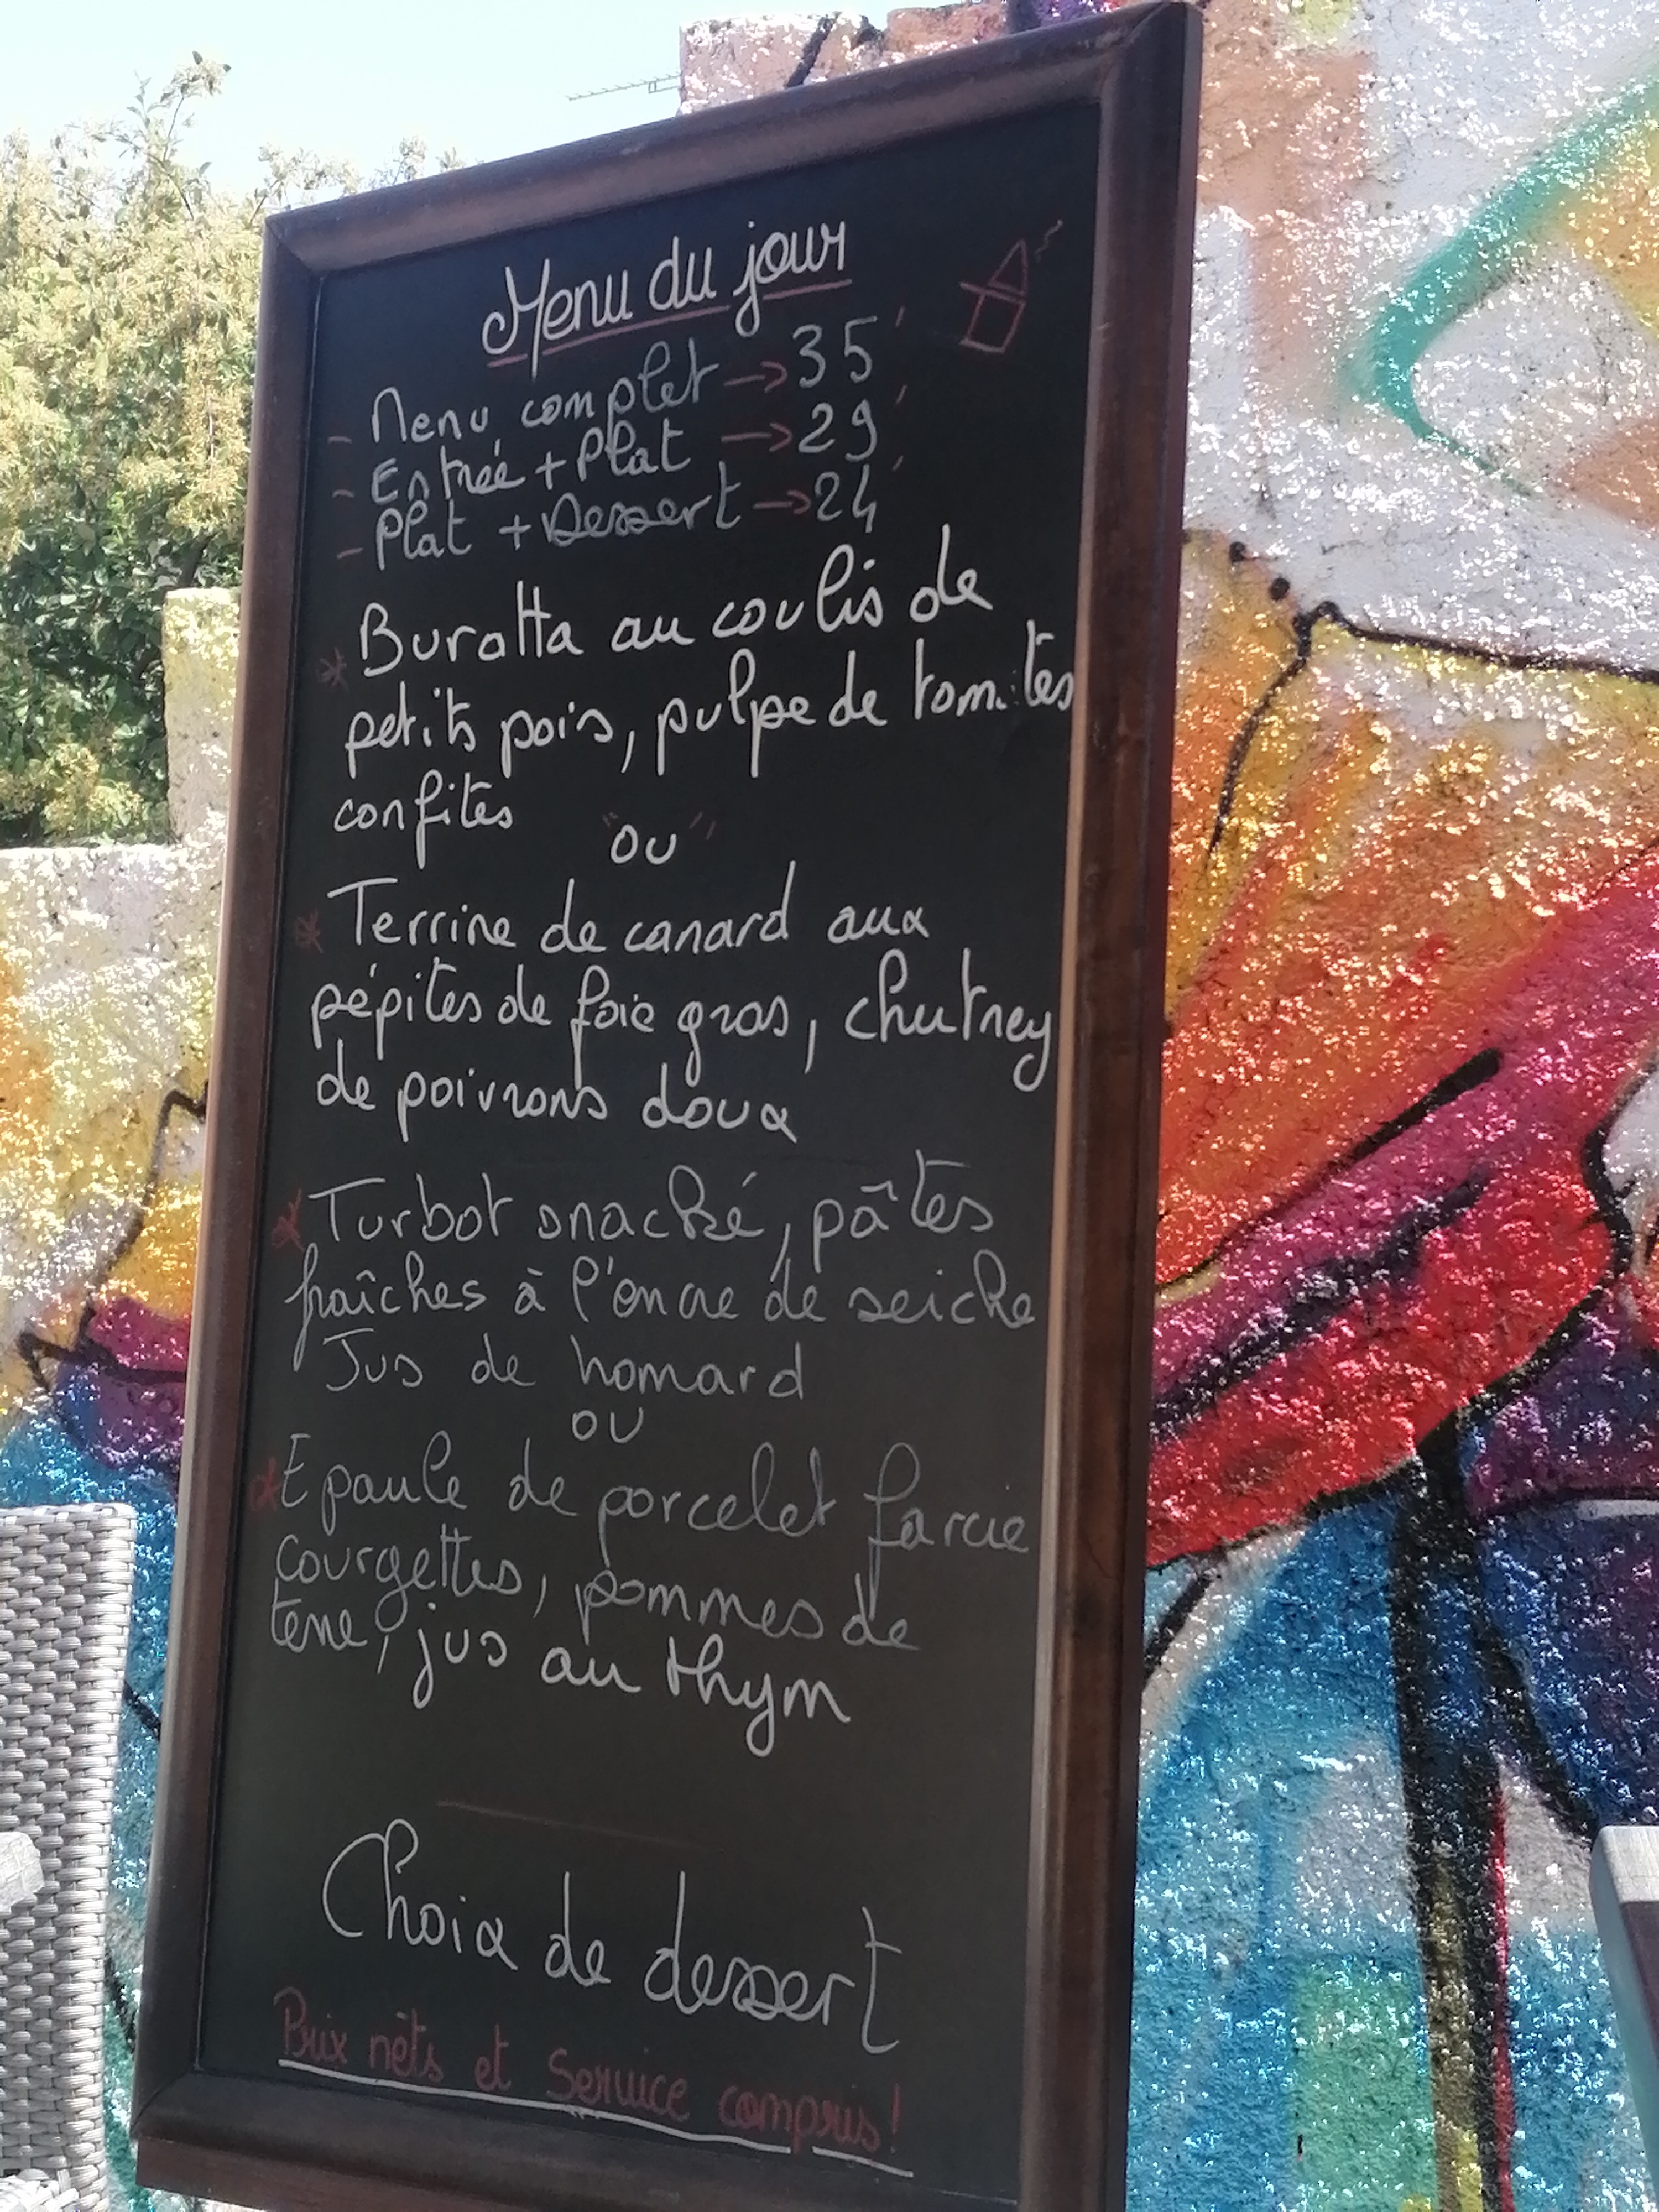 Menu du jour
- Menu complet → 35
- Entrée + Plat → 29
- Plat + Dessert → 24
* Buratta au coulis de
petits pois, pulpe de tomates
confites
"ou"
* Terrine de canard aux
pépites de foie gras, chutney
de poivrons doux
* Turbot snacké, pâtes
fraîches à l'encre de seiche
Jus de homard
ou
* Epaule de porcelet farcie
courgettes, pommes de
terre, jus au thym
Choix de dessert
Prix nets et Service compris!